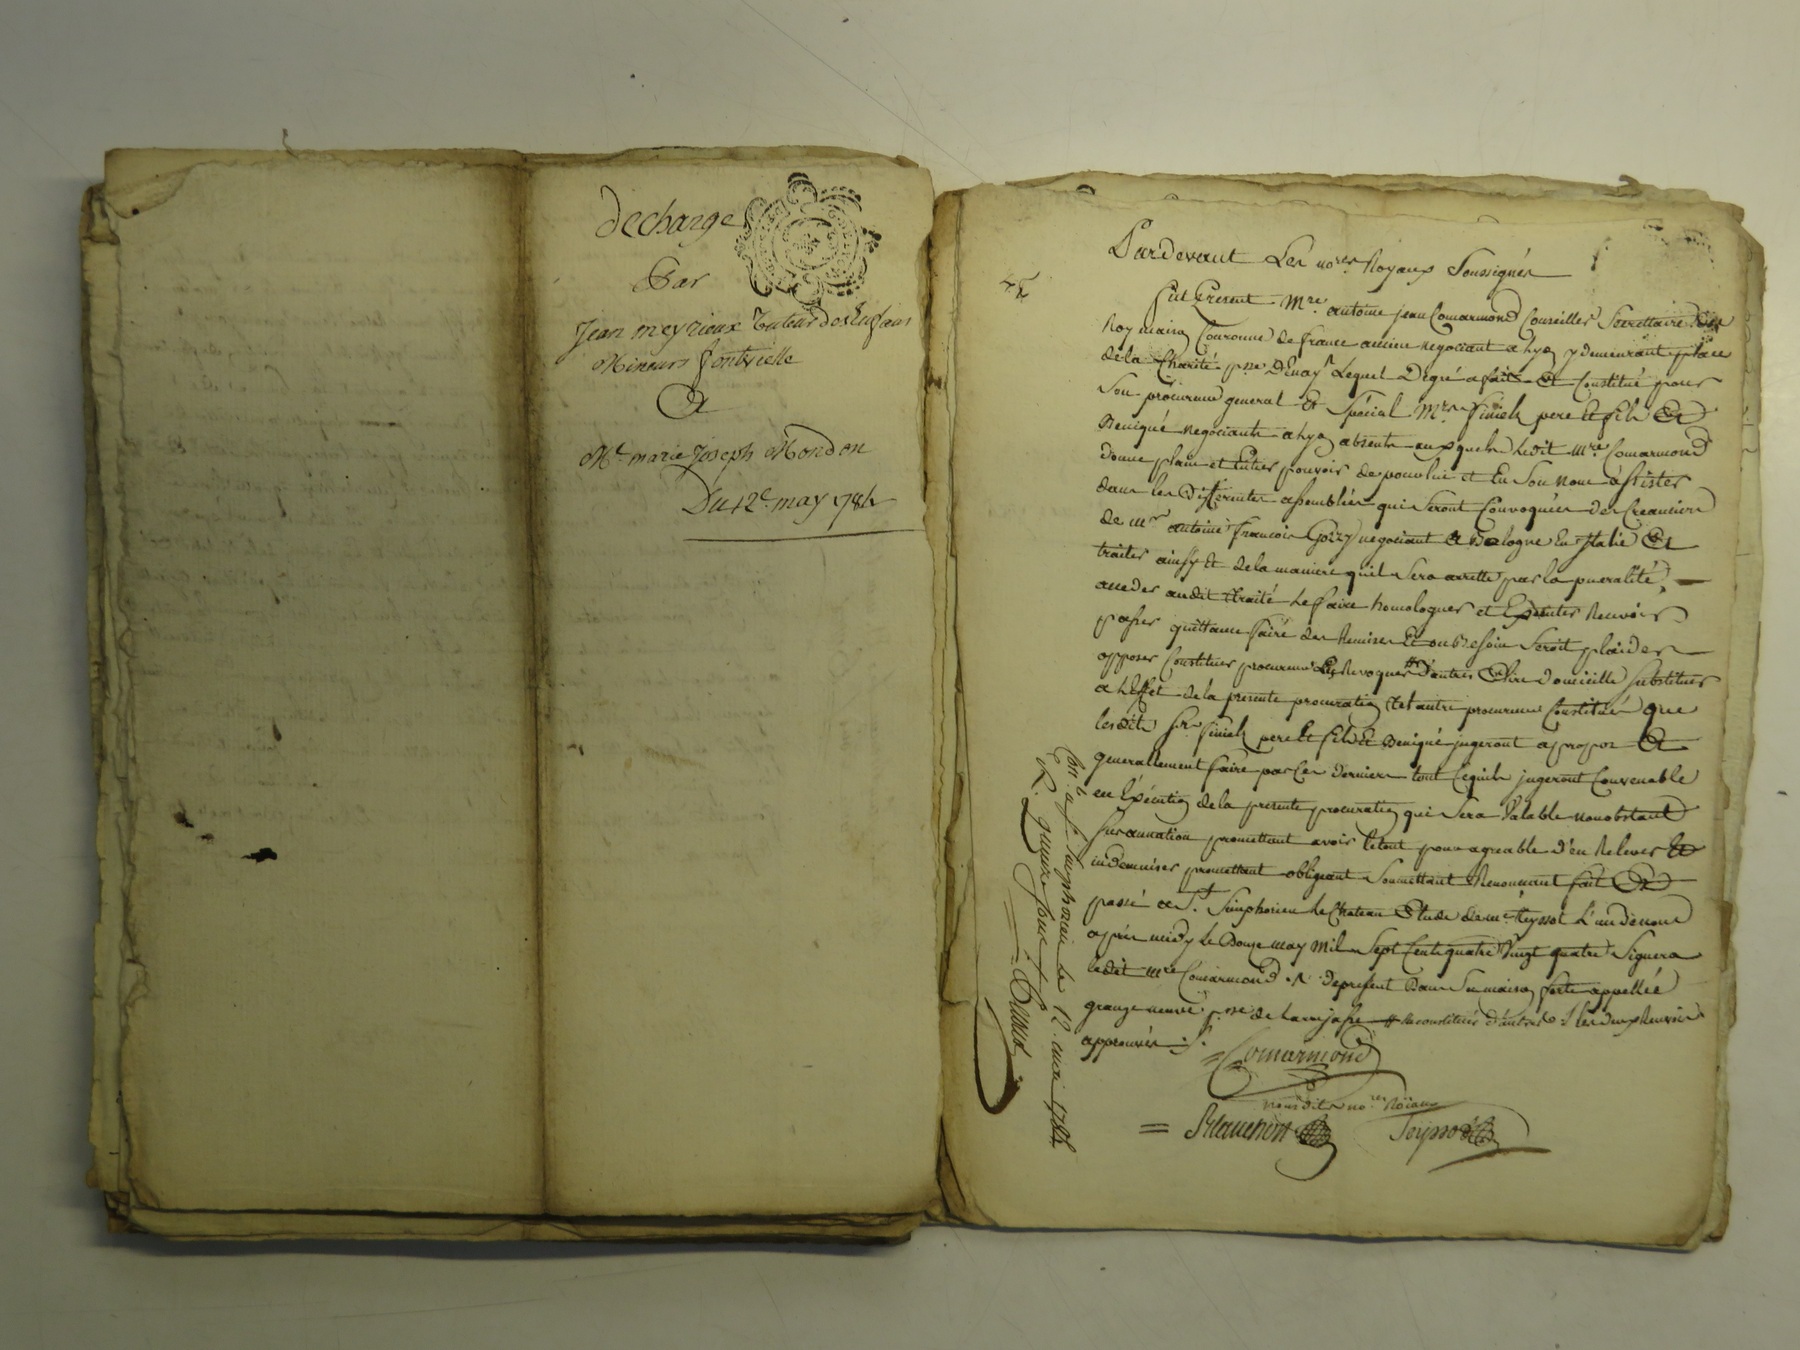 décharge
Par
Jean meyrieux Tuteur des Enfans
Mineurs fontvielle
A
Me. marie Joseph Mondon
Du 12e. may 1784
45
Pardevant Les nores. Royaux Soussignés
fut Present Mre. antoine jean Comarmond Conseiller Secretaire du
Roy maison Couronne de france ancien negociant a Lyon y demeurant place
de la Charité psse D'Enay Lequel De gré a fait et Constitué pour
Son procureur general Et Spécial Mrs. finiels pere et fils Et
Benigné negociants a Lyon absents auxquels Ledit mre. Comarmond
donne plain et Entier pouvoir de pour lui et En Son nom assister
dans les Differentes assemblées qui Seront Convoquées des Creanciers
de mr. antoine francois Gozzy negociant a Bologne En Italie Et
traiter ainsy Et de la maniere quil Sera arretté par la pueralité,
acceder audit traité Le faire homologuer et Executer Recevoir
passer quittance faire des Remises Et ou Besoin Seroit plaider
opposer Constituer procureurs Les Revoquer d'autres Elire domicille substituer
a L'Effet de la presente procuration tel autre procureur Constitué que
lesdits srs. finiels pere Et fils Et Benigné jugeront apropos Et
generallement faire par Ces derniers tout Cequils jugeront Convenable
en Exécution de la presente procuration qui Sera Valable nonobstant
Surannation promettant avoir letout pour agreable d'en Relever Et
indemniser promettant obligeant Soumettant Renoncant fait Et
passé a St. Simphorien Le Chateau Etude de me. teyssot L'un denous
après midy Le Douze may Mil Sept Cents quatre Vingt quatre Signera
ledit mre Comarmond de present Dans Sa maison forte appellée
grange neuve psse de Larajasse # Reconstituer d'autres les deux Renvois
approuvés
Comarmond
Nousdits nores Roiaux
Blanchon Teyssot
Con. a st. simphorien le 12. mai 1784
R. quinze sous